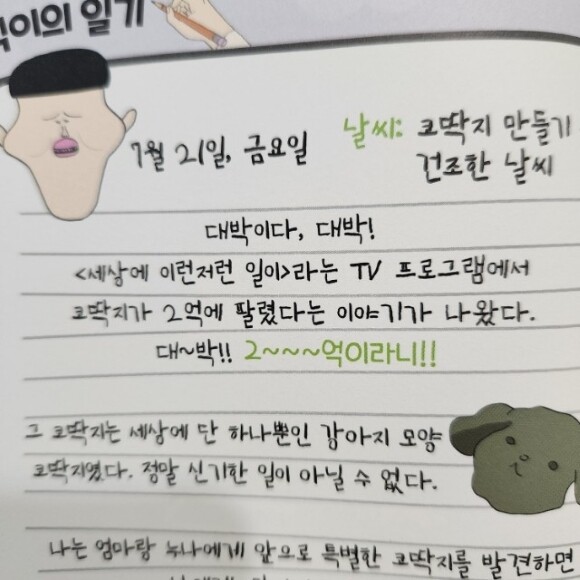 이의 일기
7월 21일, 금요일
날씨: 코딱지 만들기
건조한 날씨
대박이다, 대박!
<세상에 이런저런 일이>라는 TV 프로그램에서
코딱지가 2억에 팔렸다는 이야기가 나왔다.
대~박!! 2~~~~억이라니!!
그 코딱지는 세상에 단 하나뿐인 강아지 모양
코딱지였다. 정말 신기한 일이 아닐 수 없다.
나는 엄마랑 누나에게 앞으로 특별한 코딱지를 발견하면